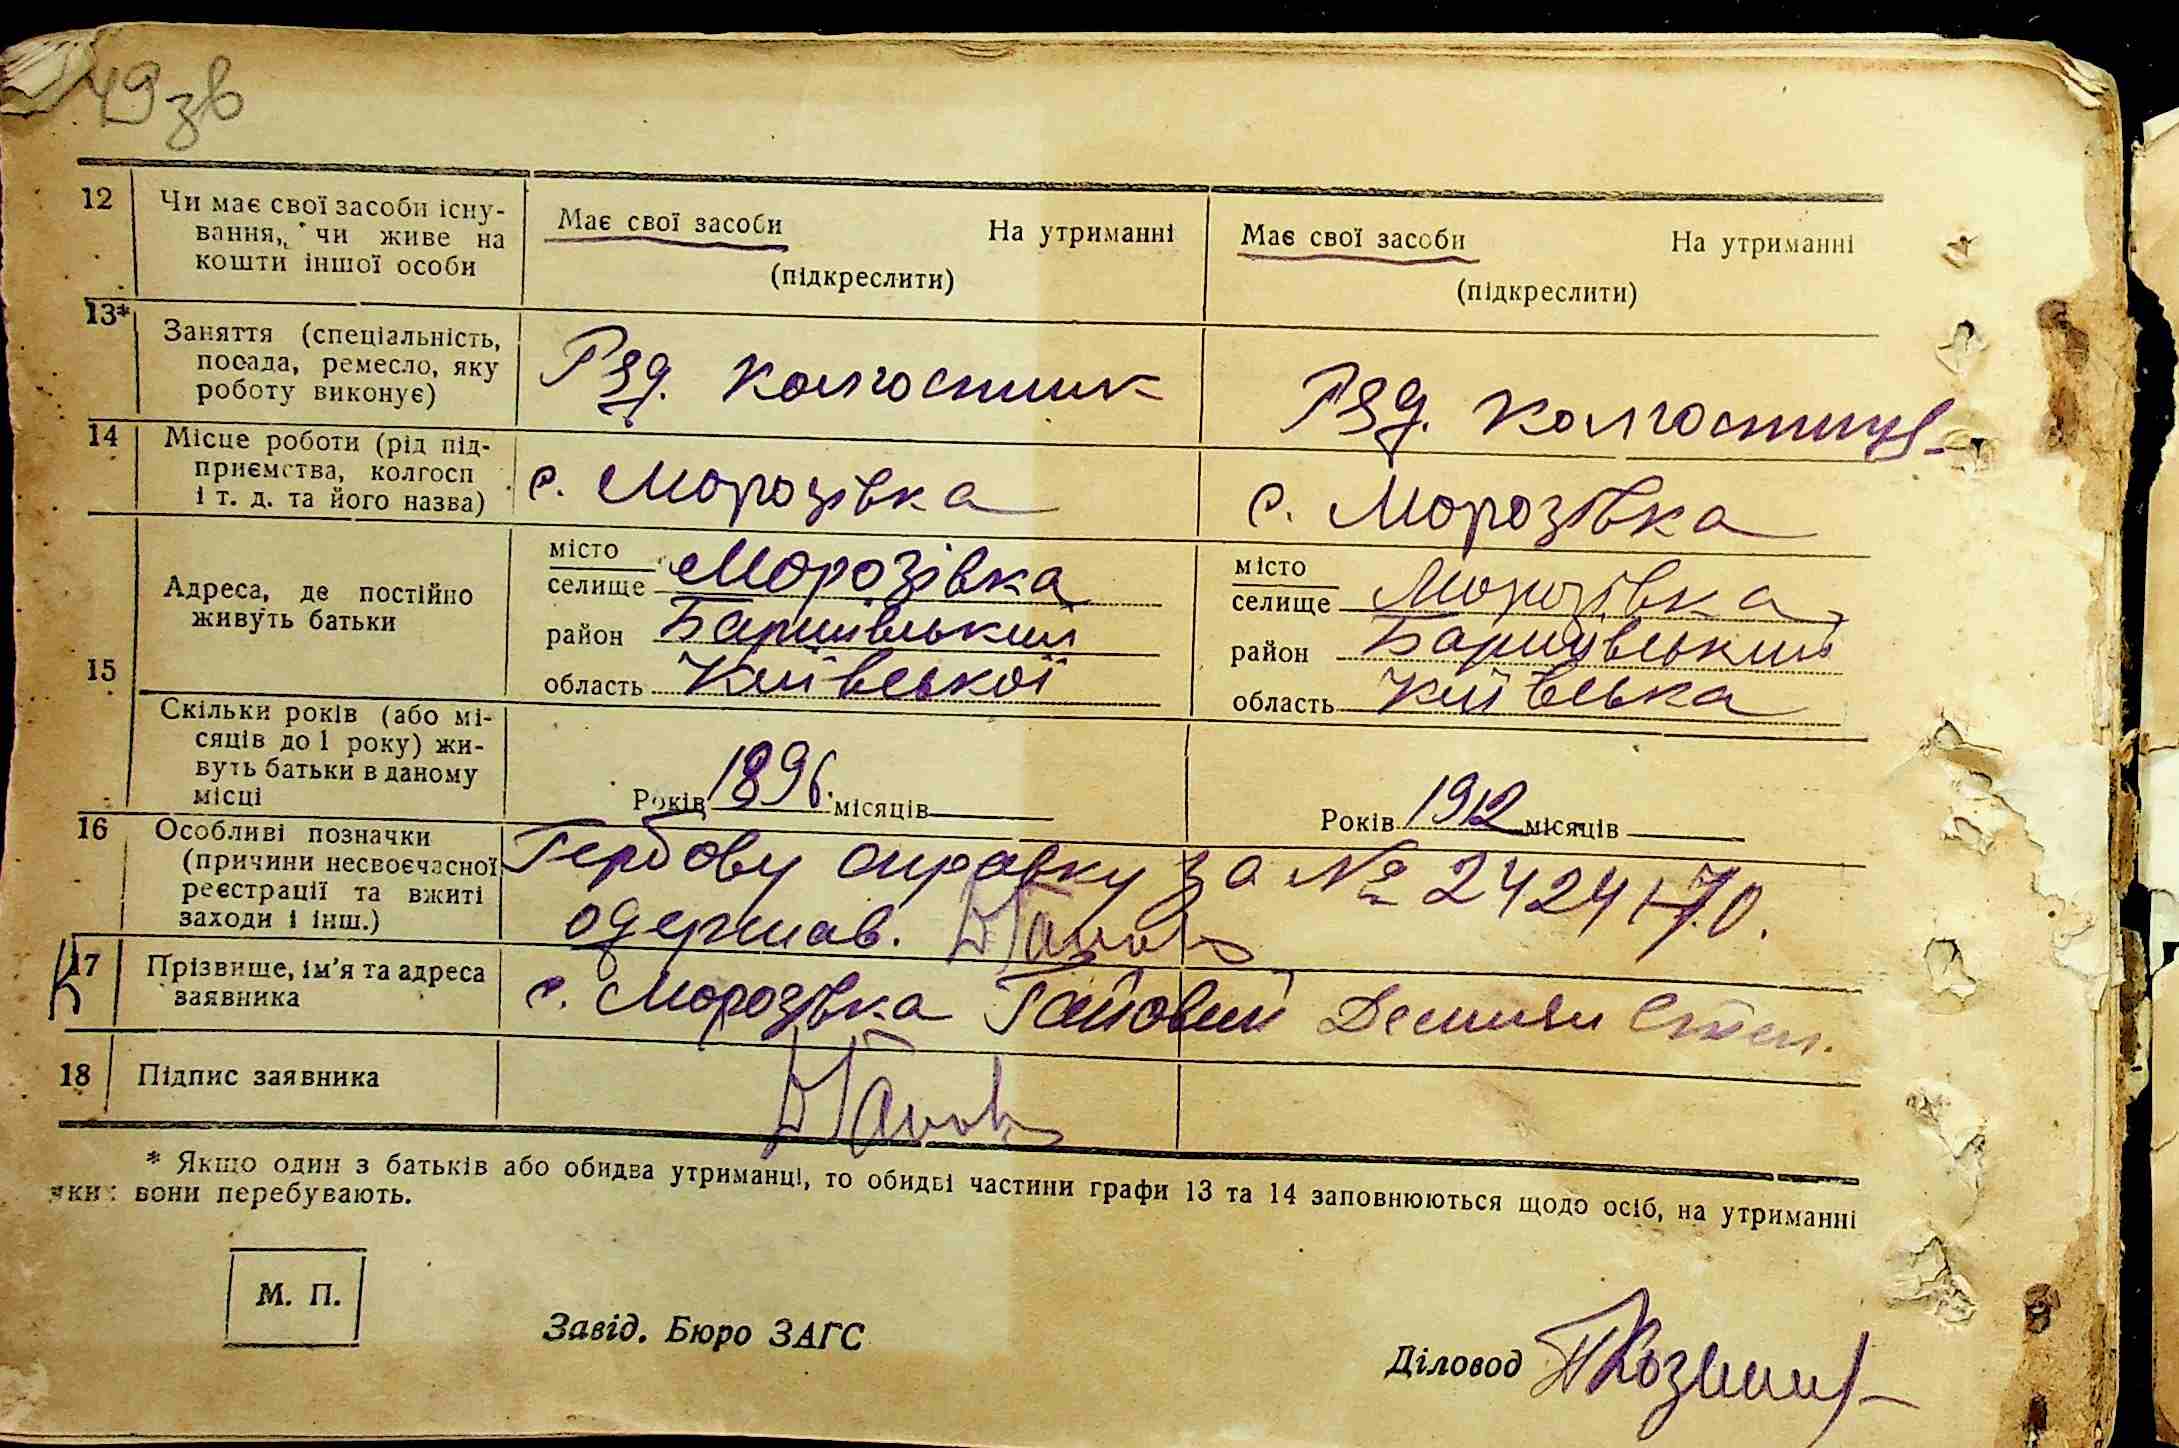 49зв
12 Чи має свої засоби існу-
вання, чи живе на
кошти іншої особи
Має свої засоби На утриманні
(підкреслити)
Має свої засоби На утриманні
(підкреслити)
13* Заняття (спеціальність,
посада, ремесло, яку
роботу виконує)
Ряд. колгоспник
Ряд. колгоспниця
14 Місце роботи (рід під-
приємства, колгосп
і т. д. та його назва)
с. Морозівка
с. Морозівка
15
Адреса, де постійно
живуть батьки
місто
селище Морозівка
район Баришівський
область Київської
місто
селище Морозівка
район Баришівський
область Київська
Скільки років (або мі-
сяців до 1 року) жи-
вуть батьки в даному
місці
Років 1896. місяців
Років 1912 місяців
16 Особливі позначки
(причини несвоєчасної
реєстрації та вжиті
заходи і інш.)
Гербову справку за № 2424170.
одержав.
17 Прізвище, ім'я та адреса
заявника
с. Морозівка Гайовий Демян Степ.
18 Підпис заявника
* Якщо один з батьків або обидва утриманці, то обидві частини графи 13 та 14 заповнюються щодо осіб, на утриманні
яких вони перебувають.
М. П.
Завід. Бюро ЗАГС
Діловод